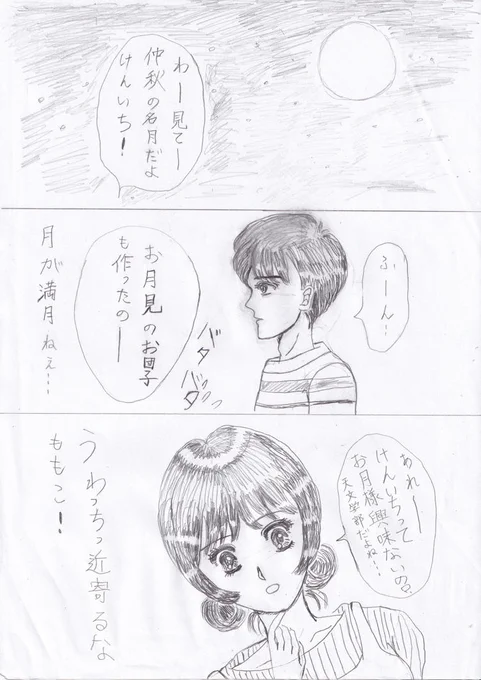 わー見てー
仲秋の名月だよ
けんいち!
ふーん…
お月見のお団子
も作ったのー
バタバタッ
月が満月ねぇ…
あれー
けんいちって
お月様興味ないの?
天文学部だよね!…
うわっちっ近寄るな
ももこ!